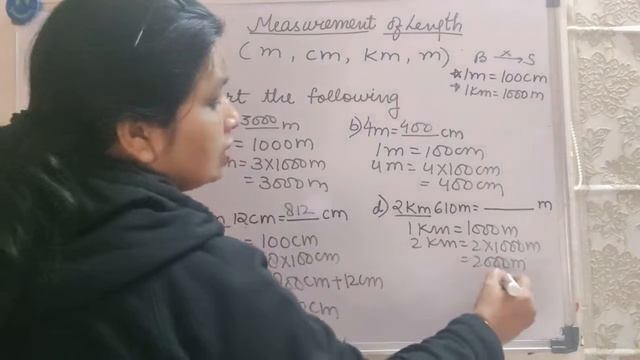 Measurement of Length
(m, cm, km, m)
B x→ S
1m = 100cm
1km = 1000m
the following
3000 m
= 1000m
= 3×1000m
= 3000m
b) 4m = 400 cm
1m = 100cm
4m = 4×100cm
= 400cm
12cm = 812 cm
= 100cm
×100cm
cm + 12cm
cm
d) 2km 610m = ____ m
1km = 1000m
2km = 2×1000m
= 2000m